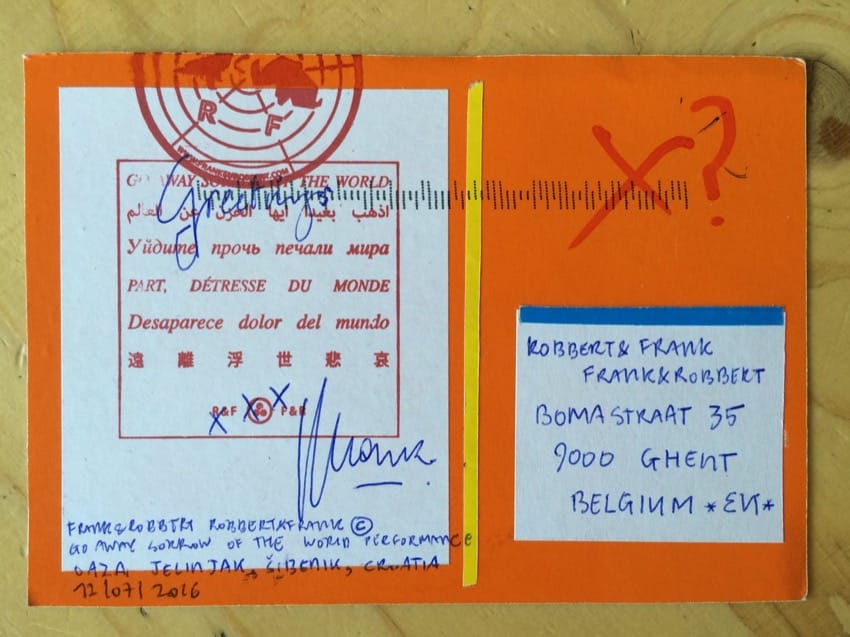 R F
GO AWAY SORROW OF THE WORLD
Greetings
اذهب بعيدا ايها الحزن عن العالم
Уйдите прочь печали мира
PART, DÉTRESSE DU MONDE
Desaparece dolor del mundo
遠離浮世悲哀
R&F F&R
XXX
Frank
FRANK&ROBBERT ROBBERT&FRANK ©
GO AWAY SORROW OF THE WORLD PERFORMANCE
OAZA, JELINJAK, ŠIBENIK, CROATIA
12/07/2016
X?
ROBBERT& FRANK
FRANK&ROBBERT
BOMASTRAAT 35
9000 GHENT
BELGIUM *EU*